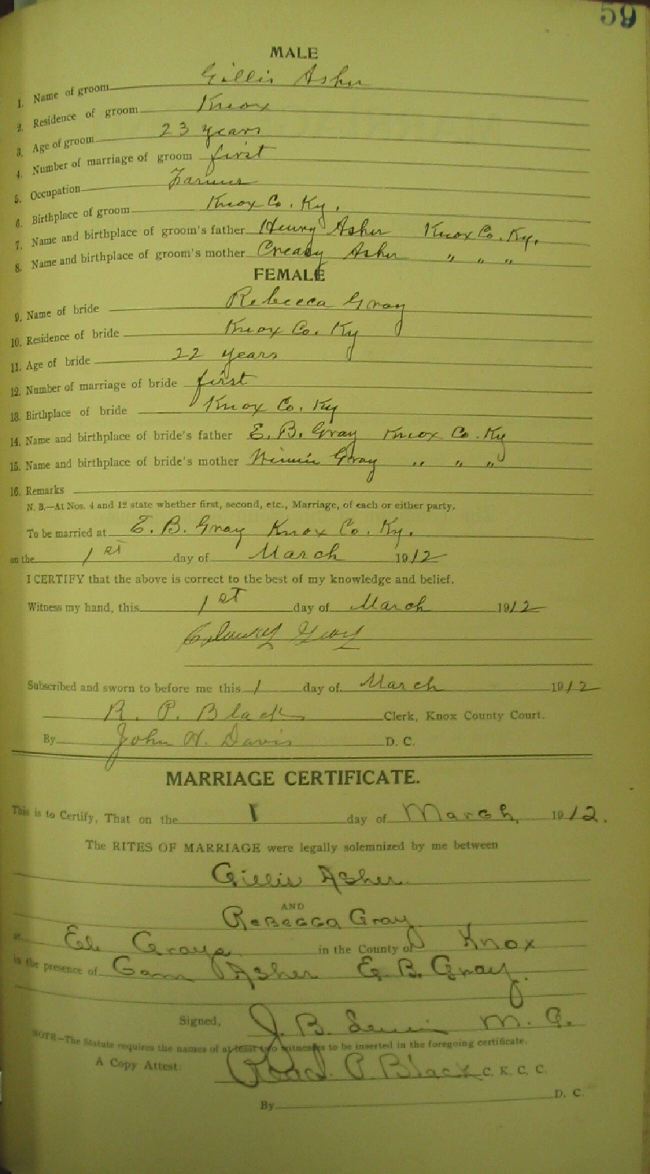 59
MALE
1. Name of groom Gillis Asher
2. Residence of groom Knox
3. Age of groom 23 years
4. Number of marriage of groom first
5. Occupation Farmer
6. Birthplace of groom Knox Co. Ky.
7. Name and birthplace of groom's father Henry Asher Knox Co. Ky.
8. Name and birthplace of groom's mother Creasy Asher " " "
FEMALE
9. Name of bride Rebecca Gray
10. Residence of bride Knox Co. Ky
11. Age of bride 22 years
12. Number of marriage of bride first
13. Birthplace of bride Knox Co. Ky
14. Name and birthplace of bride's father E. B. Gray Knox Co. Ky
15. Name and birthplace of bride's mother Gray " " "
16. Remarks
N. B.—At Nos. 4 and 12 state whether first, second, etc., Marriage, of each or either party.
To be married at E. B. Gray Knox Co. Ky.
on the 1st day of March 1912
I CERTIFY that the above is correct to the best of my knowledge and belief.
Witness my hand, this 1st day of March 1912
Subscribed and sworn to before me this 1 day of March 1912
R. P. Black Clerk, Knox County Court.
By John H. Davis D. C.
MARRIAGE CERTIFICATE.
This is to Certify, That on the 1 day of March, 1912.
The RITES OF MARRIAGE were legally solemnized by me between
Gillis Asher
AND
Rebecca Gray
at Eb Grays in the County of Knox
in the presence of Asher E. B. Gray.
Signed, J. B. M. G.
NOTE—The Statute requires the names of at least two witnesses to be inserted in the foregoing certificate.
A Copy Attest: P. Black C. K. C. C.
By D. C.